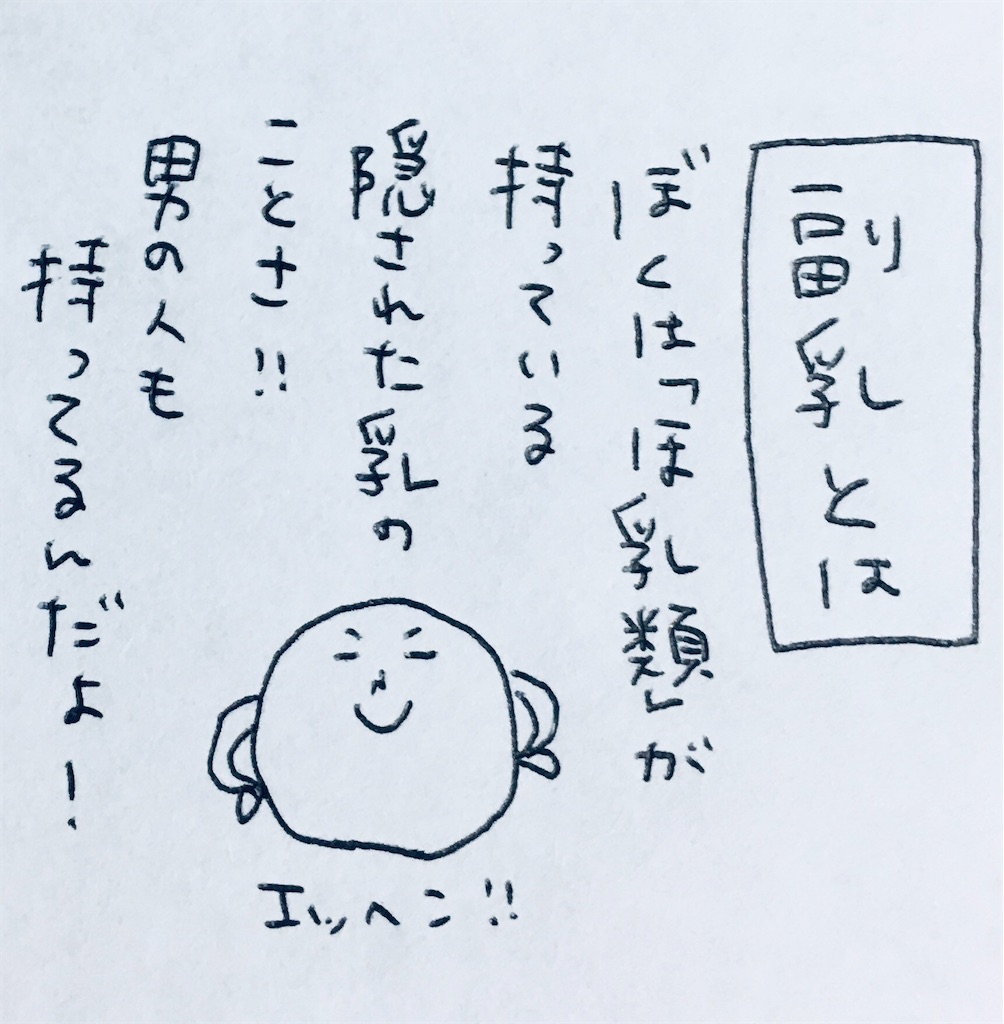 副乳とは
ぼくは「ほ乳類」が
持っている
隠された乳の
ことさ!!
男の人も
持ってるんだよ!
エッヘン!!